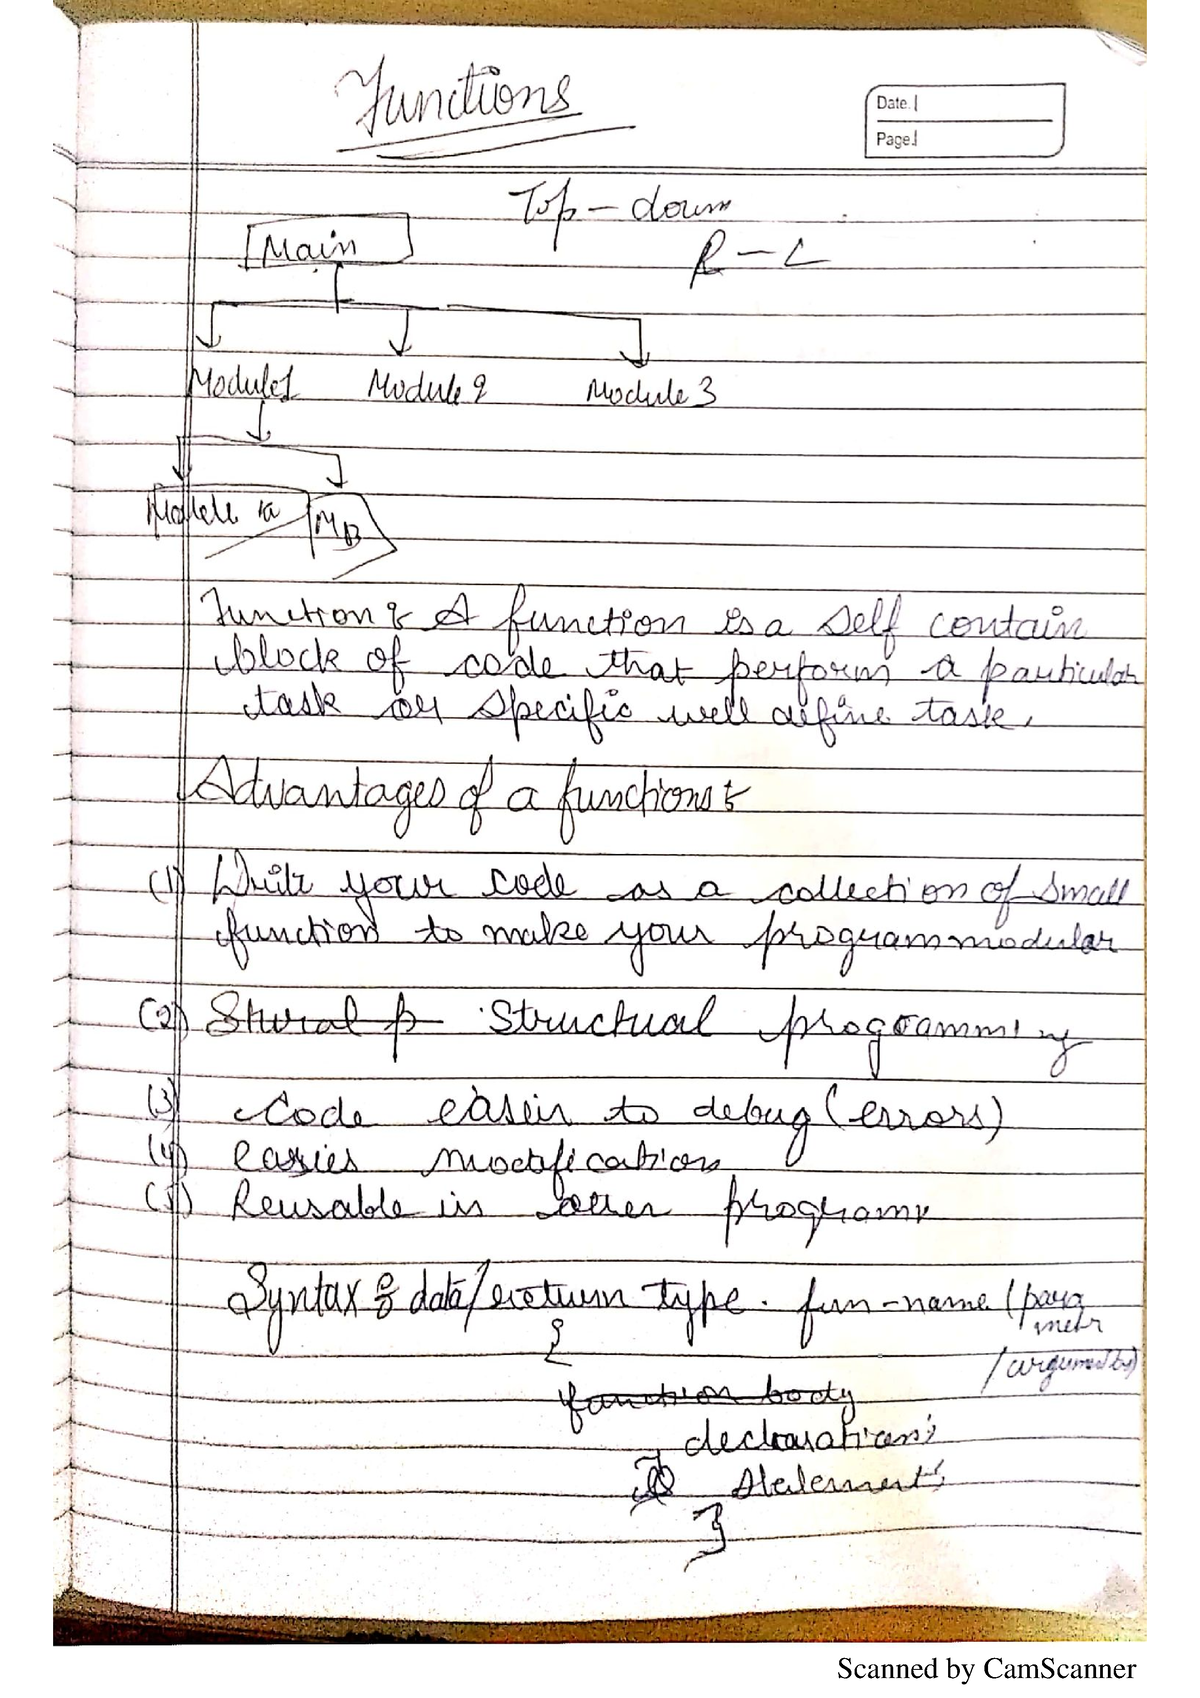 Functions
Date.
Page.
Top - down
Main
R - L
Module1 Module 2 Module 3
Module 1a MB
Function : A function is a self contain
block of code that perform a particular
task or specific well define task.
Advantages of a functions :
(1) Write your code as a collection of small
function to make your program modular
(2) Stural p Structual programming
(3) Code easier to debug (errors)
(4) easies modification
(5) Reusable in other programs
Syntax : data/return type. fun-name (para
meter
{
/arguments)
function body
declarations;
statement;
}
Scanned by CamScanner